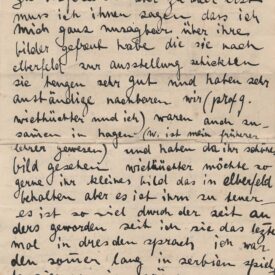 muss ich ihnen sagen dass ich
mich ganz unsagbar über ihre
bilder gefreut habe die sie nach
elberfeld zur ausstellung schickten
sie hengen sehr gut und haben sehr
anständige nachbaren wir (prof g.
wiethüchter und ich) waren auch zu-
sammen in hagen (w. ist mein früherer
lerer gewesen) und haten da ihr schönes
bild gesehen wiethüchter möchte so
gerne ihr kleines bild das in elberfeld
behalten aber es ist ihm zu teuer
es ist so viel durch der zeit an
ders geworden seit ich sie das letzte
mal in dresden sprach ich wa
den sommer lang in serbien spiel